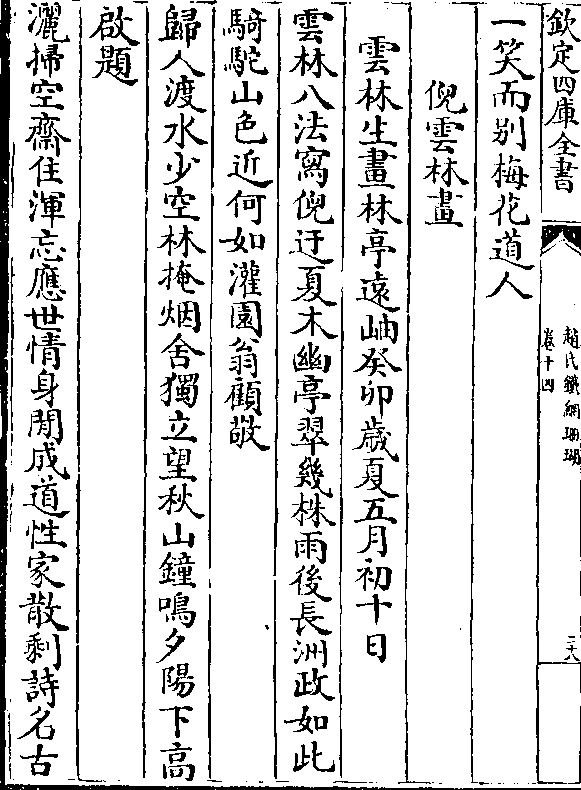 欽定四庫全書
趙氏鐵網珊瑚
卷十四
二十八
一笑而别梅花道人
倪雲林畫
雲林生畫林亭遠岫癸卯歳夏五月初十日
雲林八法寫倪迂夏木幽亭翠幾株雨後長洲政如此
騎駝山色近何如灌園翁顧敬
歸人渡水少空林掩烟舍獨立望秋山鐘鳴夕陽下高
啟題
灑掃空齋住渾忘應世情身閒成道性家散剩詩名古